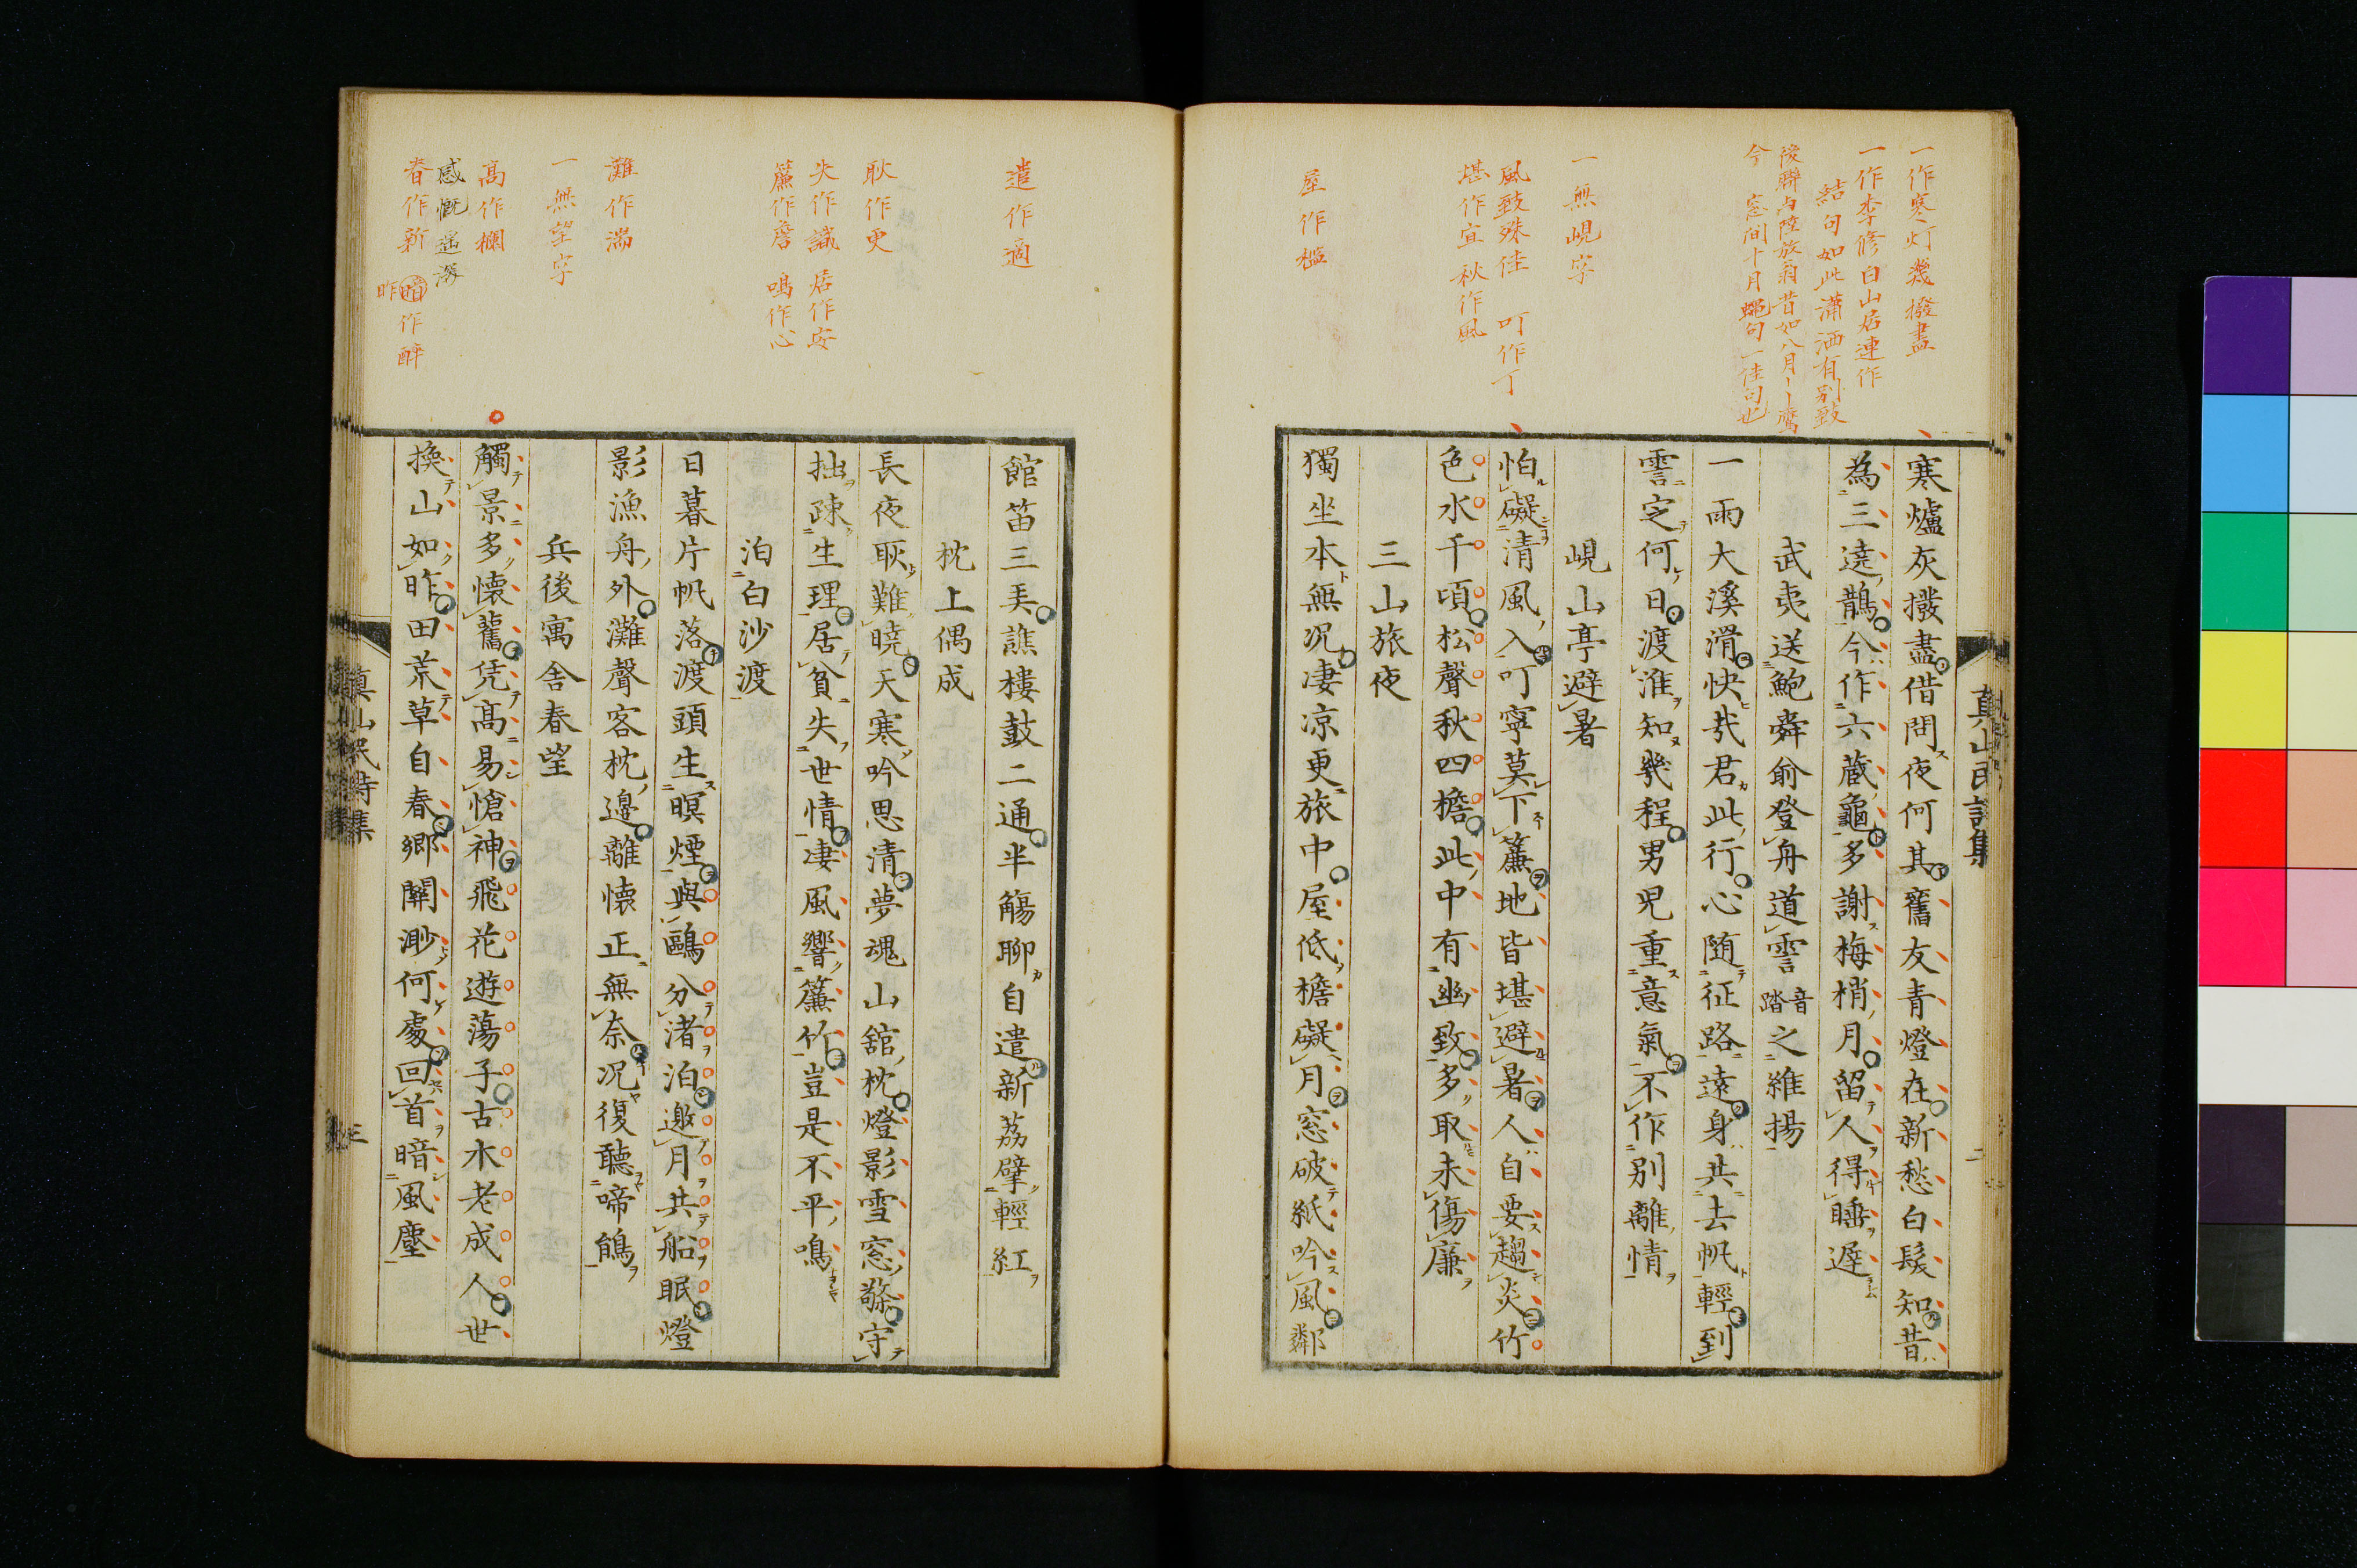 一作寒灯幾撥盡
一作李修白山居連作
結句如此瀟洒有別致
今
窓間十月蠅句一佳句也
一無峴字
風致殊佳 叮作丁
堪作宜 秋作風
屋作檻
真山民詩集
二
寒爐灰撥盡借問夜何其舊友青燈在新愁白髮知昔
為三遶鵲今作六蔵龜多謝梅梢月留人得睡遅
武夷送鮑舜俞登舟道霅音踏之維揚
一雨大溪滑快哉君此行心随征路遠身共去帆輕到
霅定何日渡淮知幾程男児重意氣不作別離情
峴山亭避暑
怕礙清風入叮寧莫下簾地皆堪避暑人自要趨炎竹
色水千頃松聲秋四檐此中有幽致多取未傷廉
三山旅夜
獨坐本無况凄凉更旅中屋低檐礙月窓破紙吟風鄰
遣作適
耿作更
失作識 居作安
簾作詹 鳴作心
灘作湍
一無望字
高作欄
感慨遥深
春作新 暗作醉
昨
館笛三弄譙樓鼓二通半觴聊自遣新荔擘輕紅
枕上偶成
長夜耿難曉天寒吟思清夢魂山舘枕燈影雪窓檠守
拙疎生理居貧失世情凄風響簾竹豈是不平鳴
泊白沙渡
日暮片帆落渡頭生暝煙與鷗分渚泊邀月共船眠燈
影漁舟外灘聲客枕邊離懐正無奈况復聽啼鵑
兵後寓舎春望
觸景多懐舊凭高易愴神飛花遊蕩子古木老成人世
換山如昨田荒草自春郷關渺何處回首暗風塵
真山民詩集
三